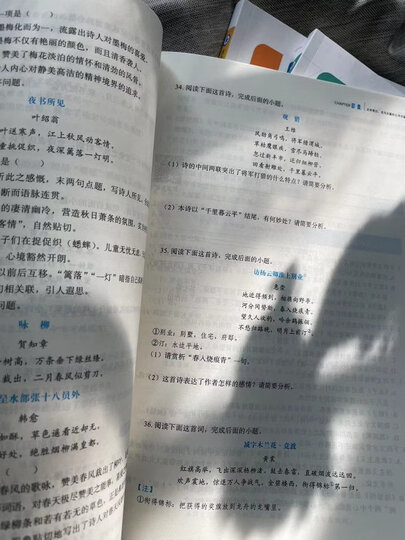 一项是（ ）
梅化而为一，流露出诗人对墨梅的喜爱。
墨梅不仅有艳丽的颜色，而且清香袭人。
赞美了梅花淡泊的情怀和清劲的风骨，
人内心对静美高洁的精神境界的追求。
夜书所见
叶绍翁
叶送寒声，江上秋风动客情。
童挑促织，夜深篱落一灯明。
是（ ）
断而语脉连贯。
的凄清幽冷，营造秋日萧条的氛围，
客情”，自然贴切。
子们在捉促织（蟋蟀），儿童无忧无虑、
，心境豁然开朗。
以前后互移。“篱落”“一灯”暗答自己
句相关联，引人遐思。
问题。
咏 柳
贺知章
树高，万条垂下绿丝绦。
裁出，二月春风似剪刀。
呈水部张十八员外
韩愈
如酥，草色遥看近却无。
好处，绝胜烟柳满皇都。
34. 阅读下面这首诗，完成后面的小题。
观 猎
王维
风劲角弓鸣，将军猎渭城。
草枯鹰眼疾，雪尽马蹄轻。
忽过新丰市，还归细柳营。
回看射雕处，千里暮云平。
（1）诗的中间两联突出了将军打猎的什么特点？请简要分析。
（2）本诗以“千里暮云平”结尾，有何妙处？请简要分析。
35. 阅读下面这首诗，完成后面的小题。
访杨云卿淮上别业①
惠崇
地近得频到，相携向野亭。
河分冈势断，春入烧痕青。
望久人收钓，吟余鹤振翎。
不愁归路晚，明月上前汀②。
①别业：别墅，住宅，府邸。
②汀：水边平地。
（1）请赏析“春入烧痕青”一句。
（2）这首诗表达了作者怎样的感情？请简要分析。
36. 阅读下面这首词，完成后面的小题。
减字木兰花·竞渡
黄裳
红旗高举，飞出深深杨柳渚。鼓击春雷，直破烟波远远回。
欢声震地，惊退万人争战气。金碧楼西，衔得锦标①第一归。
【注】
①衔得锦标：把获得的奖旗放到龙舟的龙嘴里。